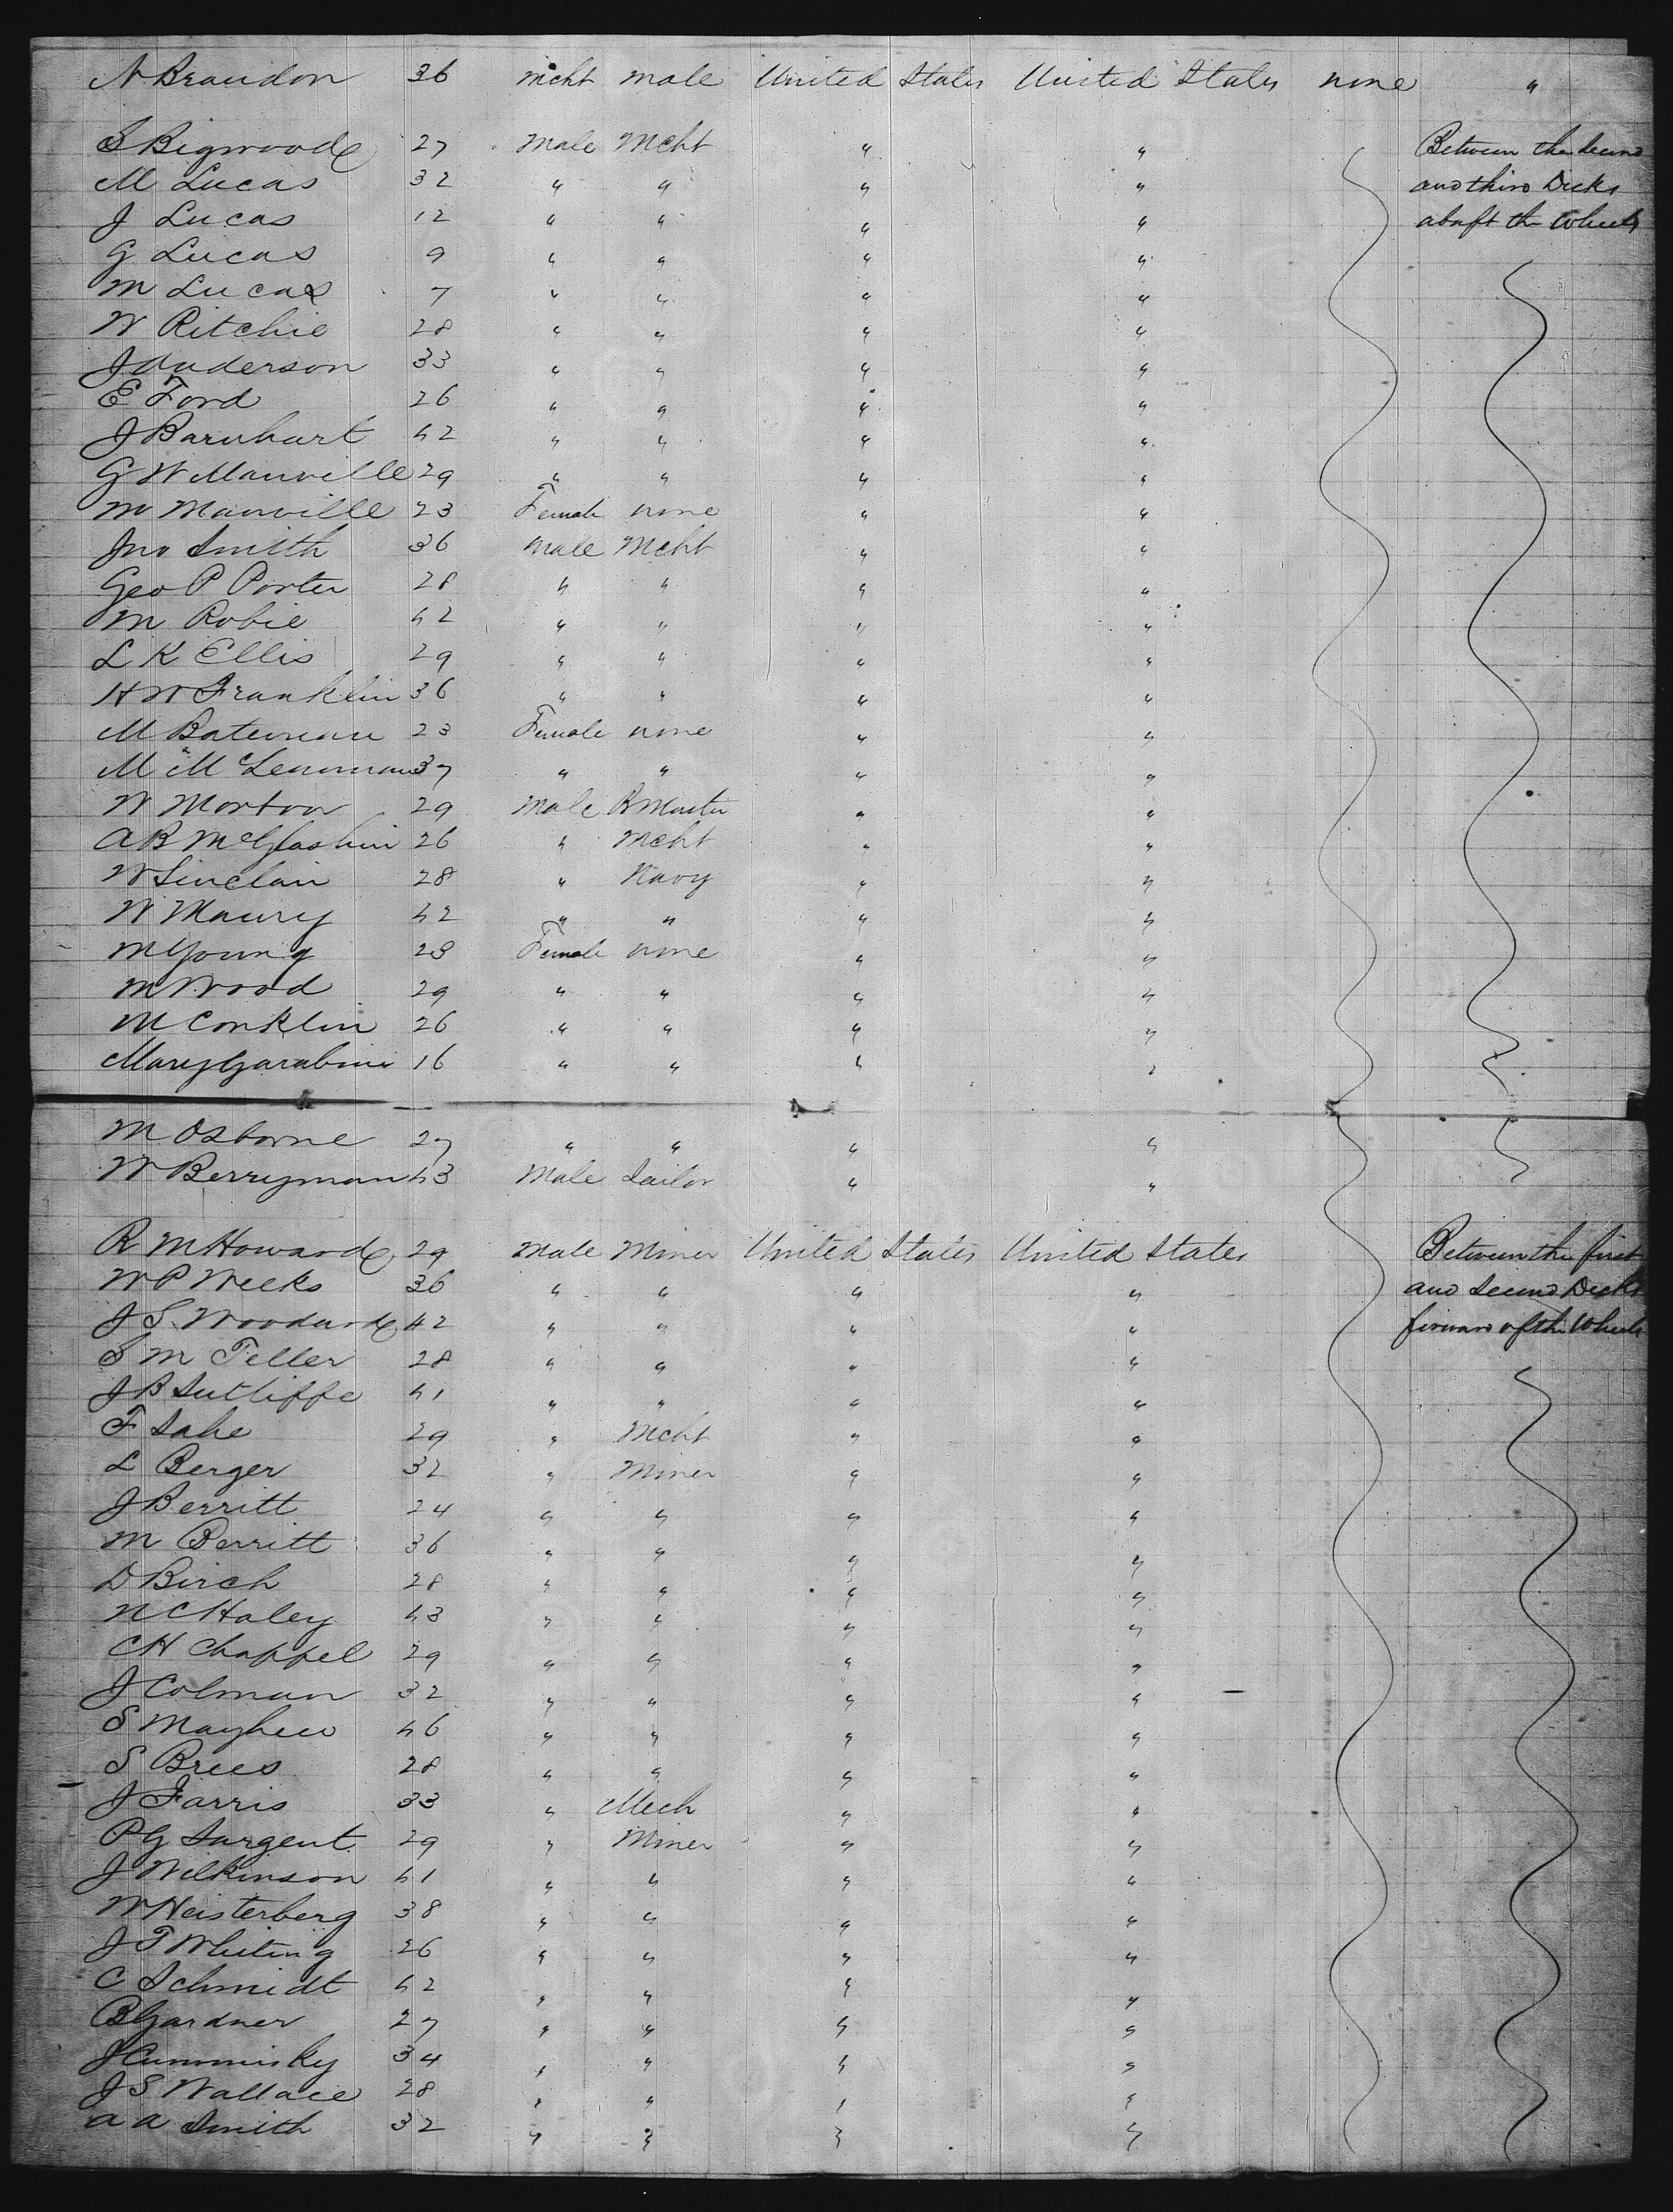 N Brandon 36 mcht male United States United States none "
S Bigwood 27 male mcht " " Between the second
M Lucas 32 " " " " and third Decks
J Lucas 12 " " " " abaft the Wheels
G Lucas 9 " " " "
M Lucas 7 " " " "
W Ritchie 28 " " " "
J Anderson 33 " " " "
E Ford 26 " " " "
J Barnhart 42 " " " "
G W Manville 29 " " " "
M Manville 23 Female none " "
Jno Smith 36 male Mcht " "
Geo P Porter 28 " " " "
M Robie 42 " " " "
L K Ellis 29 " " " "
H W Franklin 36 " " " "
M Bateman 23 Female none " "
M McLennan 37 " " " "
W Morton 29 Male " "
A B McGlashin 26 " Mcht " "
W Sinclair 28 " Navy " "
W Maury 42 " " " "
M Young 23 Female none " "
M Wood 29 " " " "
M Conklin 26 " " " "
Mary 16 " " " "
M Osborne 27 " " " "
W Berryman 43 Male Sailor " "
R M Howard 29 Male Miner United States United States Between the first
W P Weeks 36 " " " " and second Decks
J S Woodward 42 " " " " forward of the Wheels
S M Teller 28 " " " "
J B Sutliffe 41 " " " "
F Sahe 29 " Mcht " "
L Berger 32 " Miner " "
J Berritt 24 " " " "
M Berritt 36 " " " "
D Birch 28 " " " "
N C Haley 43 " " " "
C H Chappel 29 " " " "
J Colman 32 " " " "
S Mayhew 46 " " " "
S Brees 28 " " " "
J Farris 33 " Mech " "
P G Sargent 29 " Miner " "
J Wilkinson 41 " " " "
W Heisterberg 38 " " " "
J T Whiting 26 " " " "
C Schmidt 42 " " " "
B Gardner 27 " " " "
J Cummisky 34 " " " "
J S Wallace 28 " " " "
A A Smith 32 " " " "